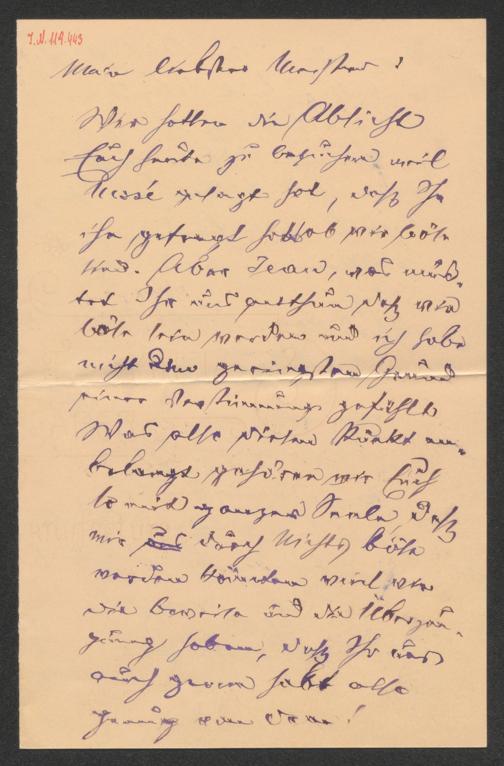 J.N. 119.443
Mein liebster Meister!
Wir hatten die Absicht
Euch heute zu besuchen weil
Rosé gesagt hat, daß Ihr
ihn gefragt habt ob wir böse
sind. Aber Jean, was müß-
tet Ihr uns anthun daß wir
böse sein werden und ich habe
nicht den geringsten Grund
einer Verstimmung gefühlt.
Was also diesen Punkt an-
belangt gehören wir Euch
so mit ganzer Seele, daß
wir durch Nichts böse
werden könnten weil wir
die Beweise und die Überzeu-
gung haben, daß Ihr uns
auch gerne habt also
genug von dem!